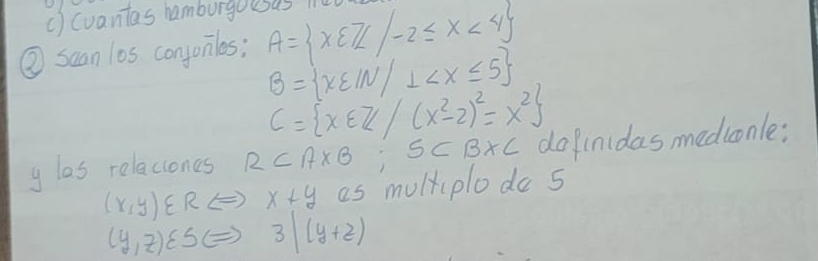 c) Cuantas hamburguesas
② Sean los conjuntos: A = {x ∈ Z / -2 ≤ x < 4}
B = {x ∈ IN / 1 < x ≤ 5}
C = {x ∈ Z / (x²-2)² = x²}
y las relaciones R ⊂ A×B ; S ⊂ B×C definidas mediante:
(x,y) ∈ R ⟺ x+y es multiplo de 5
(y,z) ∈ S ⟺ 3 | (y+z)